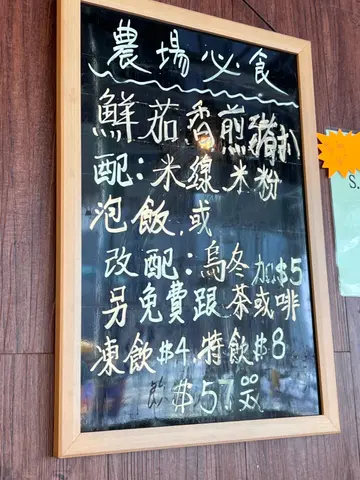 農場必食
鮮茄香煎豬扒
配：米線米粉
泡飯，或
改配：烏冬加$5
另免費跟茶或啡
凍飲$4，特飲$8
$57.00
S.